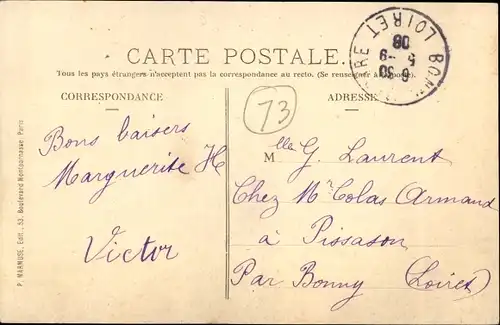 CARTE POSTALE.
Tous les pays étrangers n'acceptent pas la correspondance au recto. (Se renseigner à la poste.)
CORRESPONDANCE
ADRESSE
73
Bons baisers
Marguerite H
Victor
Mlle G. Laurent
Chez Mr Colas Armand
à Pissason
Par Bonny (Loiret)
P. MARMUSE, Edit., 53, Boulevard Montparnasse, Paris
LOIRET
5 -9
08